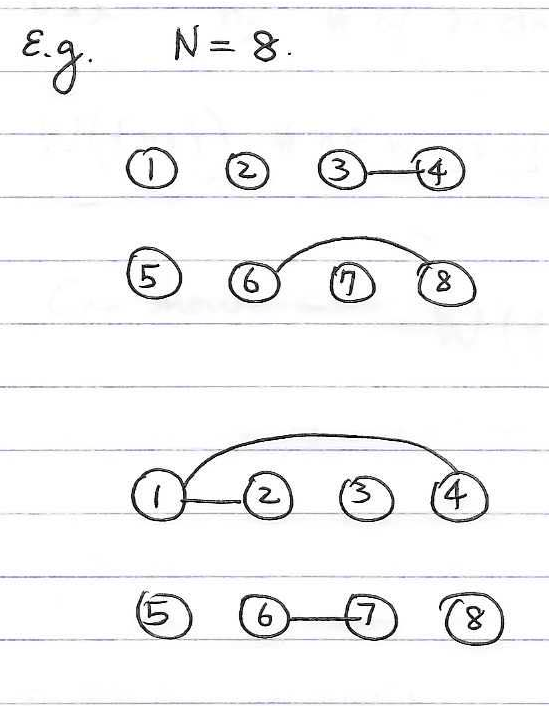 E.g. N = 8.
1 2 3 4
5 6 7 8
1 2 3 4
5 6 7 8